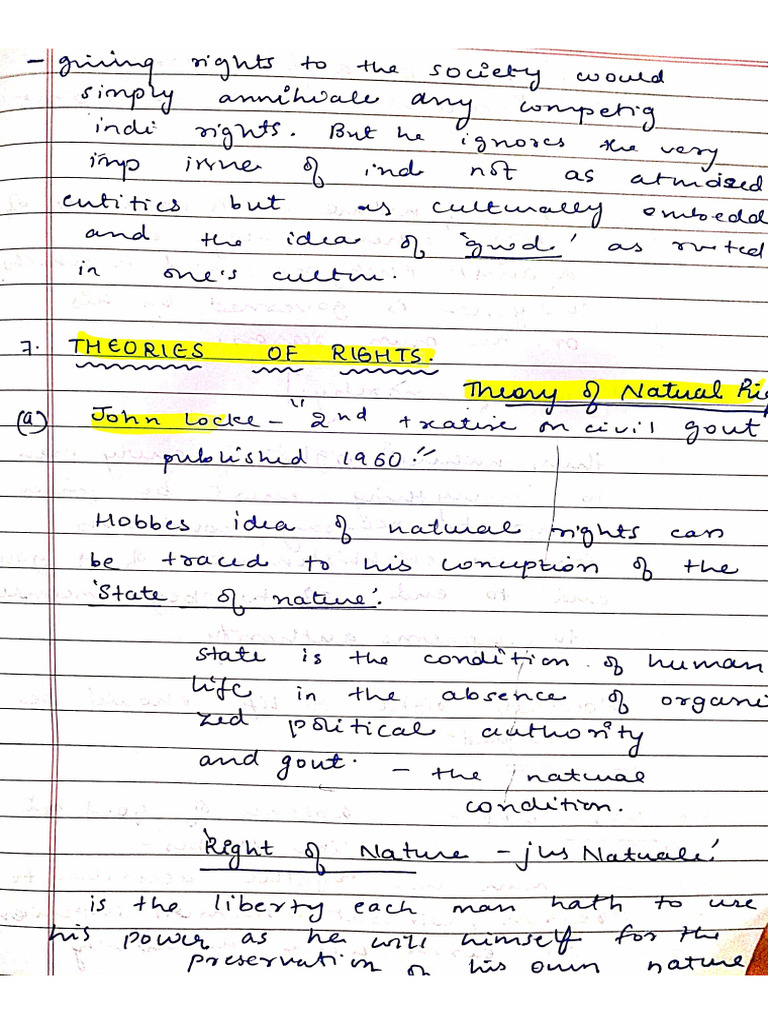 - giving rights to the society would
simply annihivale any competig
indi rights. But he ignores the very
imp issue of ind not as atmoized
entities but as culturally embedd
and the idea of 'good' as rooted
in one's cultur.
7. THEORIES OF RIGHTS.
Theory of Natural Rig
(a) John Locke - "2nd treatise on civil govt
published 1960."
Hobbes idea of natural rights can
be traced to his conception of the
'State of nature'.
State is the condition of human
life in the absence of organi
zed political authority
and govt. - the natural
condition.
'Right of Nature - jus Natuale'
is the liberty each man hath to use
his power as he will himself for the
preservation of his own nature